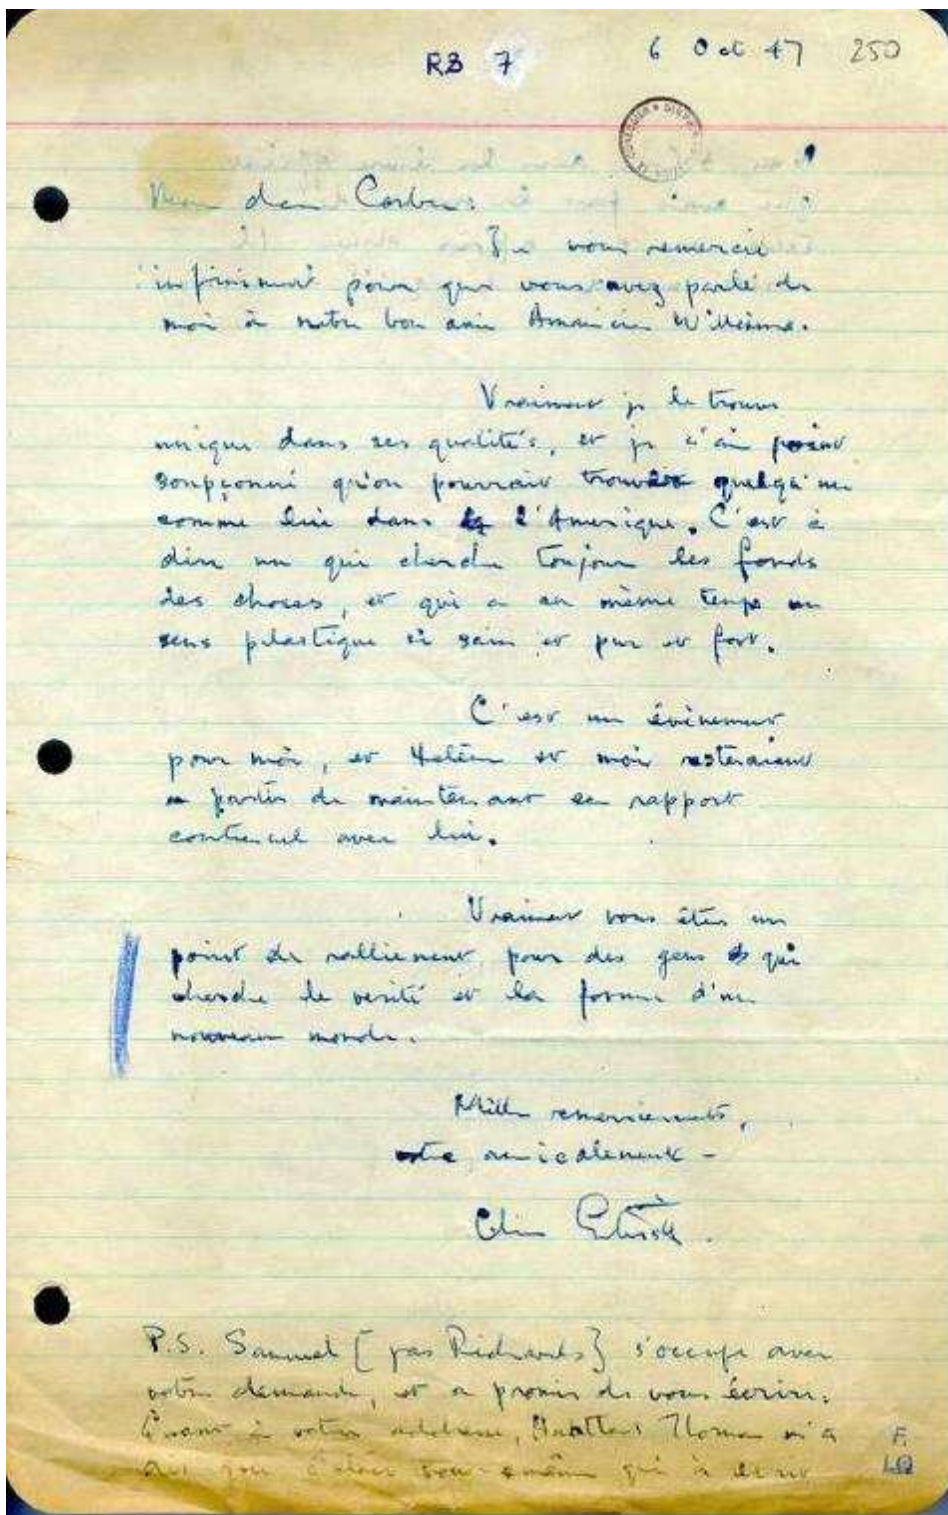 RB 7 6 Oct 47 250
Mon cher Corbu:
Je vous remercie
infiniment pour que vous avez parlé de
moi à notre bon ami Américain Williams.
Vraiment je le trouve
unique dans ses qualités, et je n'ai point
soupçonné qu'on pouvrait trouver quelqu'un
comme lui dans l'Amerique. C'est à
dire un qui cherche toujour les fonds
des choses, et qui a en même temps un
sens plastique si sain et pur et fort.
C'est un évènement
pour moi, et Hélène et moi resteraient
a partir de maintenant en rapport
continuel avec lui.
Vraiment vous êtes un
point de ralliement pour des gens qui
cherche la verité et la forme d'un
nouveau monde.
Mille remerciements,
votre amicalement -
P.S. Samuel [pas Richards] s'occupe avec
votre demande, et a promis de vous écrire.
Quant à votre addresse, m'a
dit que c'etait vous-même qui
F.
LQ